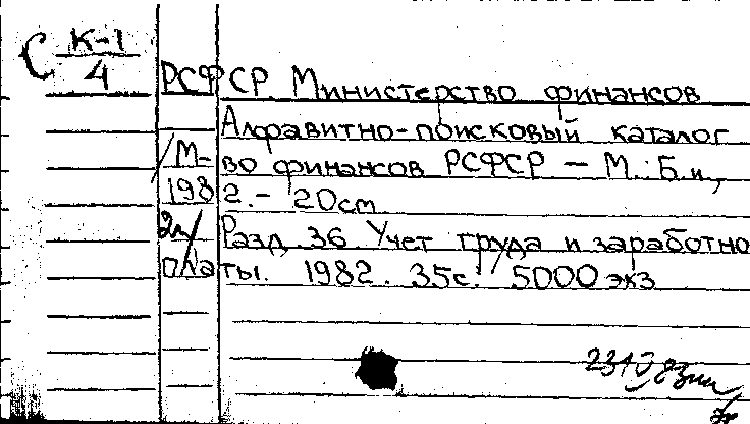 С К-1
4
РСФСР Министерство финансов
Алфавитно-поисковый каталог
/М-во финансов РСФСР - М.: Б.и.,
1982.- 20см
Разд 36 Учет труда и заработно
платы. 1982. 35с. 5000 экз